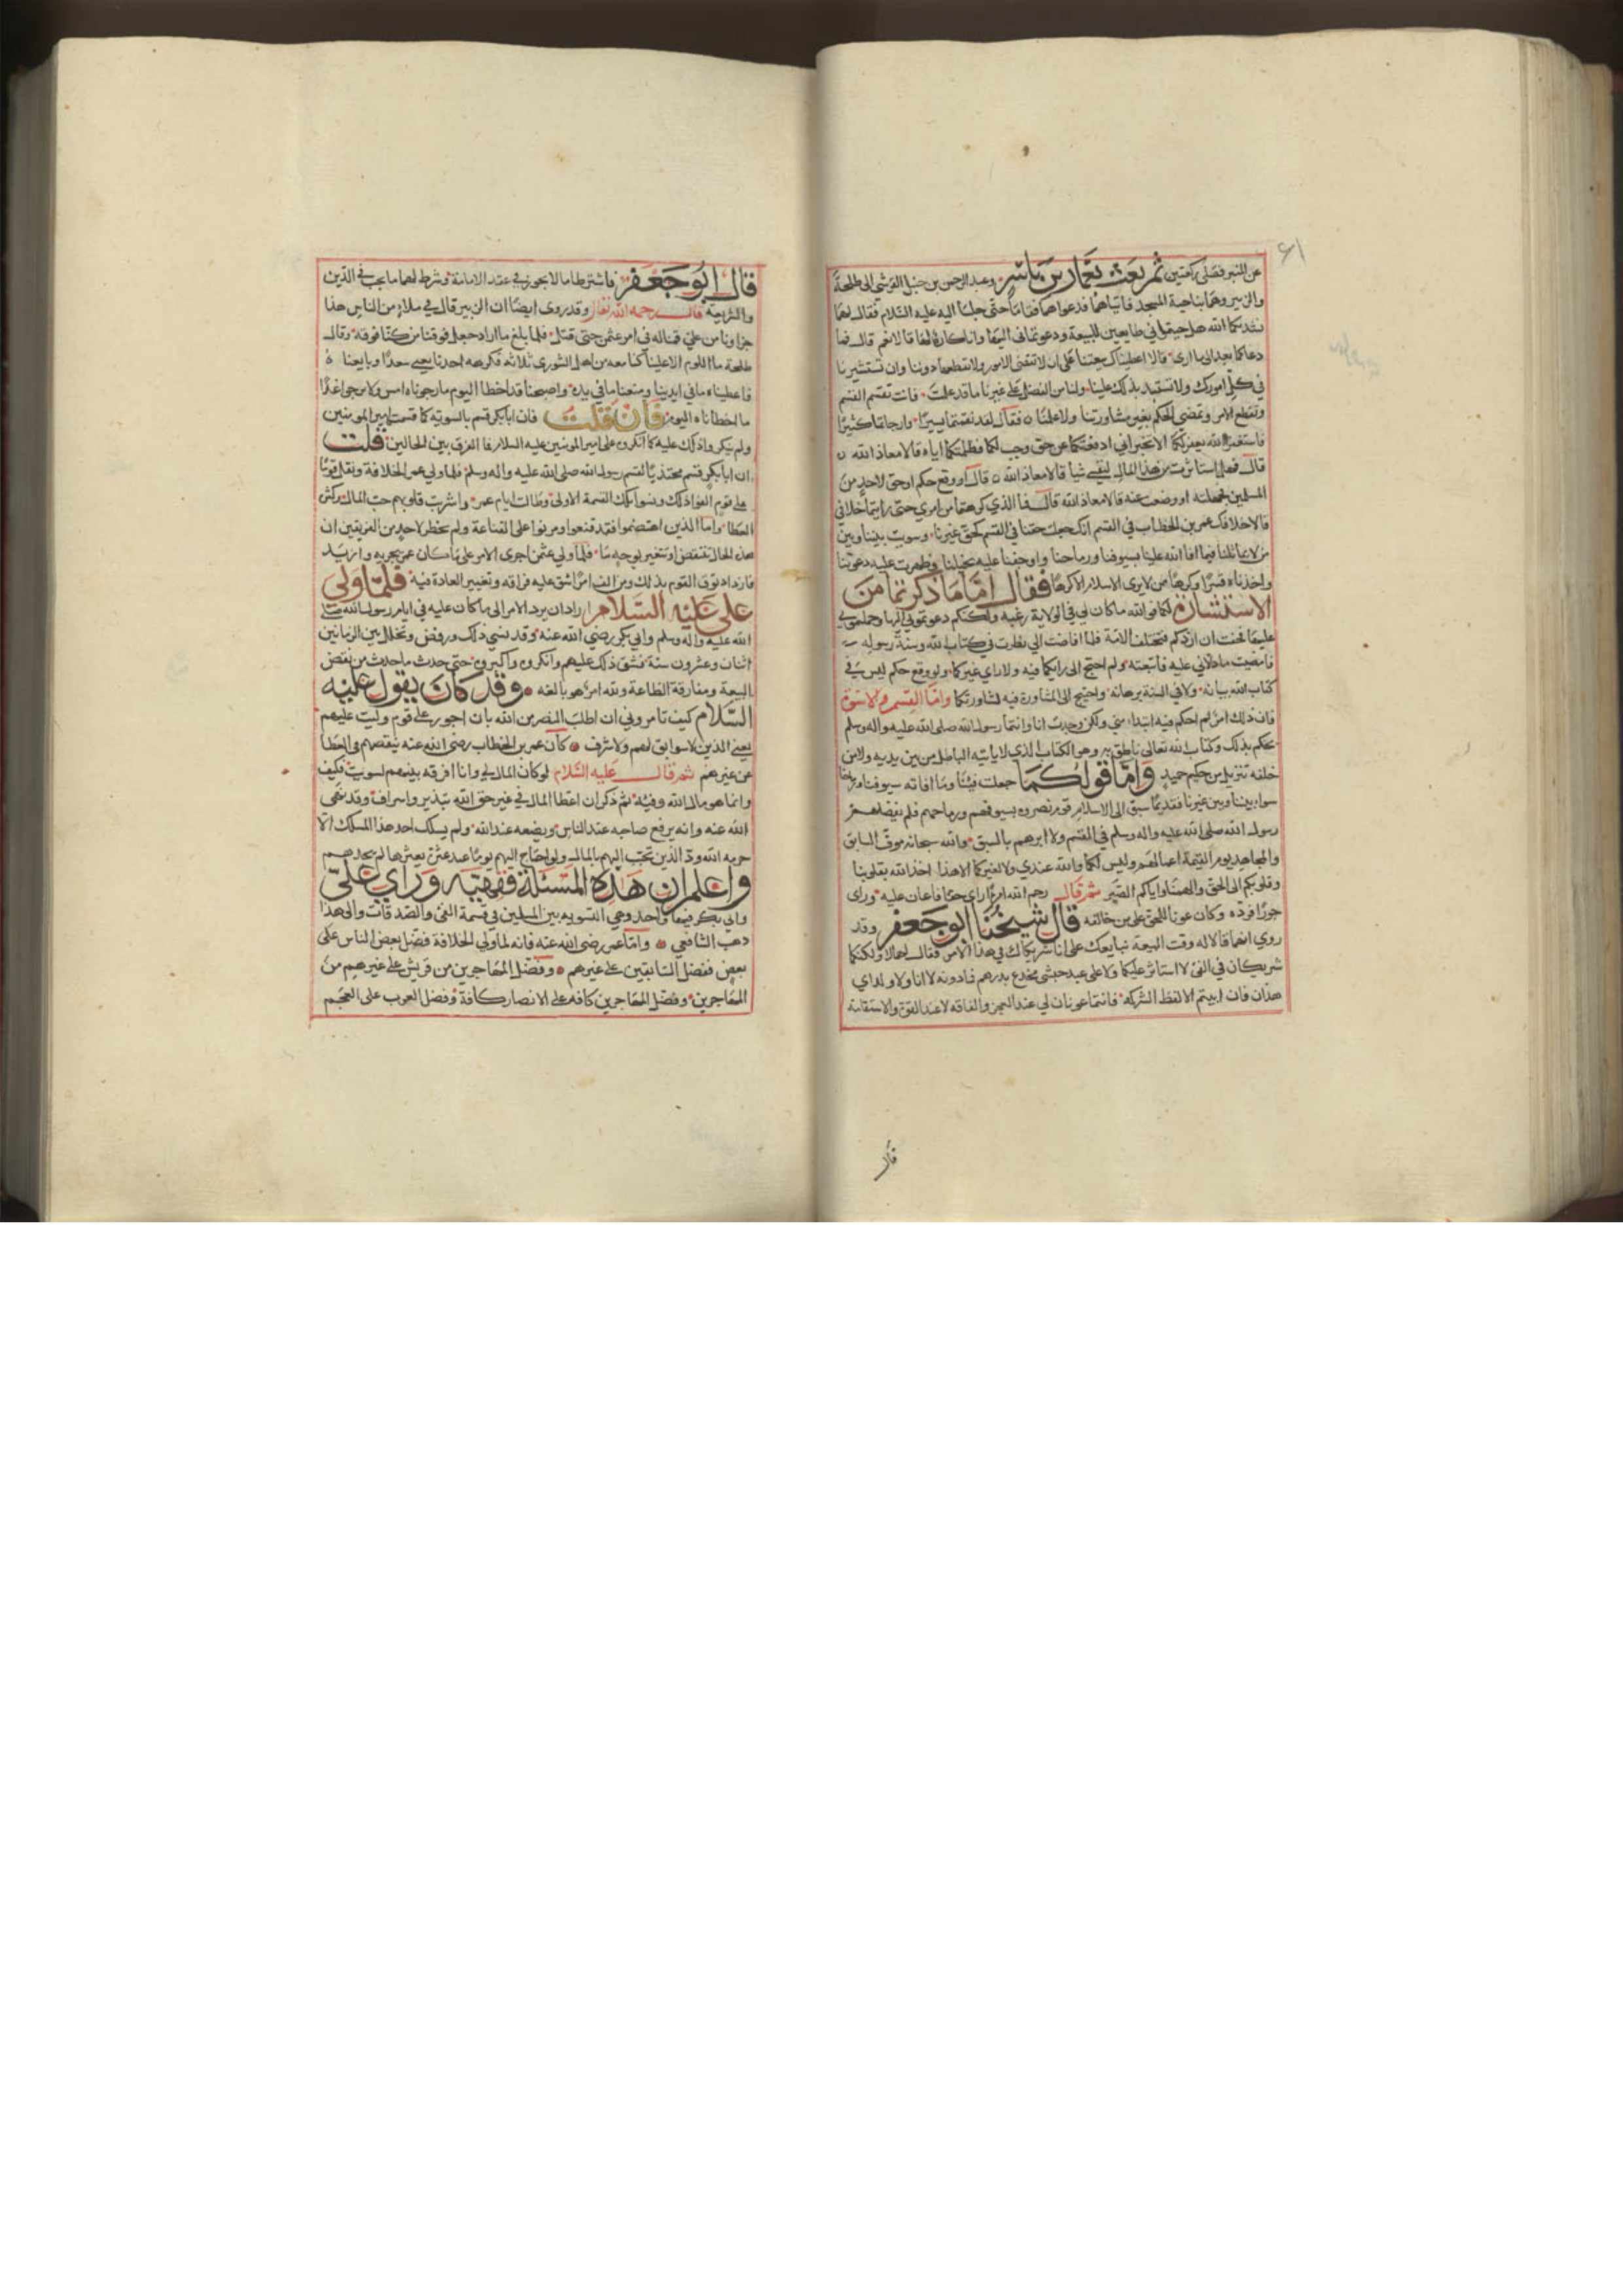 ٤١
عن المنبر فصلى ركعتين ثم بعث بعمار بن ياسر وعبد الرحمن بن حنبل القرشى الى طلحة
والزبير وهما بناحية المسجد فاتياهما فدعواهما فقاما حتى جلسا اليه عليه السلام فقال لهما
نشدتكما الله هل جيتماني طايعين للبيعة ودعوتماني اليها وانا كاره لها قالا نعم قال فما
دعاكما بعد الى ما ارى قالا اعطيناك بيعتنا على ان لا تقضى الامور ولا تقطعها دوننا وان تستشيرنا
في كل امورك ولا تستبد بذلك علينا ولنا من الفضل على غيرنا ما قد علمت فانت تقسم القسم
وتقطع الامر وتمضي الحكم بغير مشاورتنا ولا علمنا فقال لقد نقمتما يسيرا وارجاتما كثيرا
فاستغفرا الله يغفر لكما الا تخبراني ادفعتكما عن حق وجب لكما فظلمتكما اياه قالا معاذ الله
قال فهل استاثرت من هذا المال لنفسي شيا قالا معاذ الله قال افوقع حكم او حق لاحد من
المسلمين فجهلته او وضعت عنه قالا معاذ الله قال فما الذي كرهتما من امري حتى رايتما خلافي
قالا خلافك عمر بن الخطاب في القسم انك جعلت حقنا في القسم كحق غيرنا وسويت بيننا وبين
من لا يماثلنا فيما افا الله علينا بسيوفنا ورماحنا واوجفنا عليه بخيلنا وظهرت عليه دعوتنا
واخذناه قسرا وكرها من لا يرى الاسلام الا كرها فقال اما ما ذكرتما من
الاستشارة لكما فوالله ما كان لي في الولاية رغبة ولكنكم دعوتموني اليها وحملتموني
عليها فخفت ان اردكم فتختلف الامة فلما افاضت الي نظرت في كتاب الله وسنة رسوله
فامضيت ما دلاني عليه فاتبعته ولم احتج الى رايكما فيه ولا راي غيركما ولو وقع حكم ليس في
كتاب الله بيانه ولا في السنة برهانه واحتيج الى المشاورة فيه لشاورتكما واما القسم والاسوة
فان ذلك امر لم احكم فيه ابتداء مني ولكن وجدت انا وانتما رسول الله صلى الله عليه واله وسلم
يحكم بذلك وكتاب الله تعالى ناطق به وهو الكتاب الذي لا ياتيه الباطل من بين يديه ولا من
خلفه تنزيل من حكيم حميد واما قولكما جعلت فيئنا وما افاته سيوفنا ورماحنا
سوا بيننا وبين غيرنا فقديما سبق الى الاسلام قوم نصروه بسيوفهم ورماحهم فلم يفضلهم
رسول الله صلى الله عليه واله وسلم في القسم ولا اثرهم بالسبق والله سبحانه موف السابق
والمجاهد يوم القيمة اعمالهم وليس لكما والله عندي ولا لغيركما الا هذا اخذ الله بقلوبنا
وقلوبكم الى الحق والهمنا واياكم الصبر ثم قال رحم الله امرءا راى حقا فاعان عليه وراى
جورا فرده وكان عونا للحق على من خالفه قال شيخنا ابو جعفر وقد
روي انهما قالا له وقت البيعة نبايعك على انا شركاك في هذا الامر فقال لهما لا ولكنكما
شريكان في الفئ لا استاثر عليكما ولا على عبد حبشى مجدع بدرهم فما دونه لا انا ولا ولداي
هذان فان ابيتم الا لفظ الشركة فانتما عونان لي عند العجز والفاقة لا عند القوة والاستقامة
قال
قال ابو جعفر فاشترطا ما لا يجوز في عقد الامامة وشرط لهما ما يجب في الدين
والشريعة قال رحمه الله تعالى وقد روى ايضا ان الزبير قال في ملاء من الناس هذا
جزاونا من علي قمنا له في امر عثمن حتى قتل فلما بلغ ما اراد جعل فوقنا من كنا فوقه وقال
طلحة ما اللوم الا علينا كنا معه من اهل الشورى ثلاثه فكرهه احدنا يعني سعدا وبايعناه
فاعطيناه ما في ايدينا ومنعنا ما في يده واصبحنا قد اخطا اليوم ما رجوناه امس ولا نرجو غدا
ما اخطاناه اليوم فان قلت فان ابا بكر قسم بالسوية كما قسمت امير المومنين
ولم ينكروا ذلك عليه كما انكروه على امير المومنين عليه السلام فما الفرق بين الحالين قلت
ان ابا بكر قسم محتذيا لقسم رسول الله صلى الله عليه واله وسلم فلما ولي عمر الخلافة وفضل قوما
على قوم الفوا ذلك ونسوا تلك القسمة الاولى وطالت ايام عمر واشربت قلوبهم حب المال وكثرة
العطا واما الذين اهتضموا فقد قنعوا ومرنوا على القناعة ولم يخطر لاحد من الفريقين ان
هذه الحال تنتقض او تتغير بوجه ما فلما ولي عثمن اجرى الامر على ما كان عمر يجريه وازيد
فازداد وثوق القوم بذلك ومن الف امرا شق عليه فراقه وتغيير العادة فيه فلما ولي
علي عليه السلام اراد ان يرد الامر الى ما كان عليه في ايام رسول الله صلى
الله عليه واله وسلم وابي بكر رضي الله عنه وقد نسي ذلك ورفض وتخلل بين الزمانين
اثنان وعشرون سنة فشق ذلك عليهم وانكروه واكبروه حتى حدث ما حدث من نقض
البيعة ومفارقة الطاعة ولله امر هو بالغه وقد كان يقول عليه
السلام كيف تامروني ان اطلب النصر من الله بان اجور على قوم وليت عليهم
يعني الذين لا سوابق لهم ولا شرف كان عمر بن الخطاب رضى الله عنه ينقصهم في العطا
عن غيرهم ثم قال عليه السلام لو كان المال لي وانا افرقه بينهم لسويت فكيف
وانما هو مال الله وفيئه ثم ذكر ان اعطا المال في غير حق الله تبذير واسراف وقد نهى
الله عنه وانه يرفع صاحبه عند الناس ويضعه عند الله ولم يسلك احد هذا المسلك الا
حرمه الله ود الذين تحبب اليهم بالمال ولو احتاج اليهم يوما عند عثرة يعثرها لم يجدهم
واعلم ان هذه المسئلة فقهية وراي علي
وابي بكر فيها واحد وهي التسوية بين المسلمين في قسمة الفئ والصدقات والى هذا
ذهب الشافعي واما عمر رضى الله عنه فانه لما ولي الخلافة فضل بعض الناس على
بعض ففضل السابقين على غيرهم وفضل المهاجرين من قريش على غيرهم من
المهاجرين وفضل المهاجرين كافة على الانصار كافة وفضل العرب على العجم